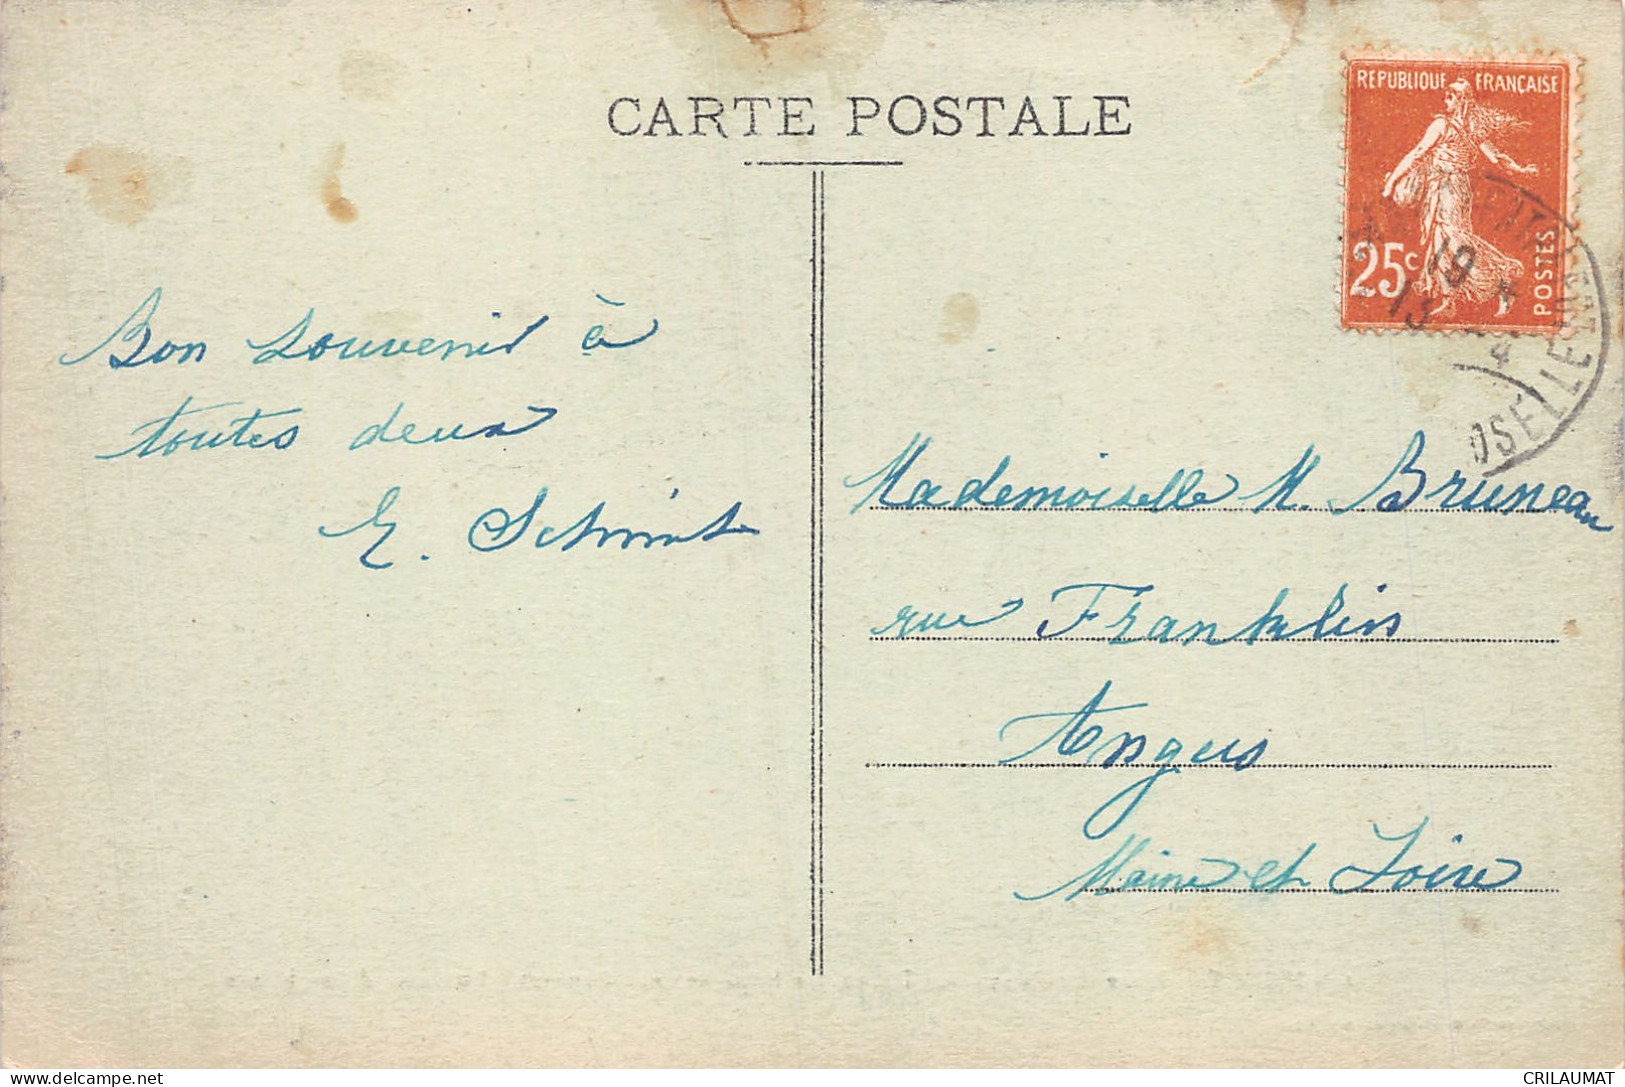 CARTE POSTALE
REPUBLIQUE FRANÇAISE
25c
POSTES
19
15
4
OSELLE
Bon souvenir à
toutes deux
E. Schmit
Mademoiselle M. Bruneau
rue Franklin
Angers
Maine et Loire
www.delcampe.net
CRILAUMAT